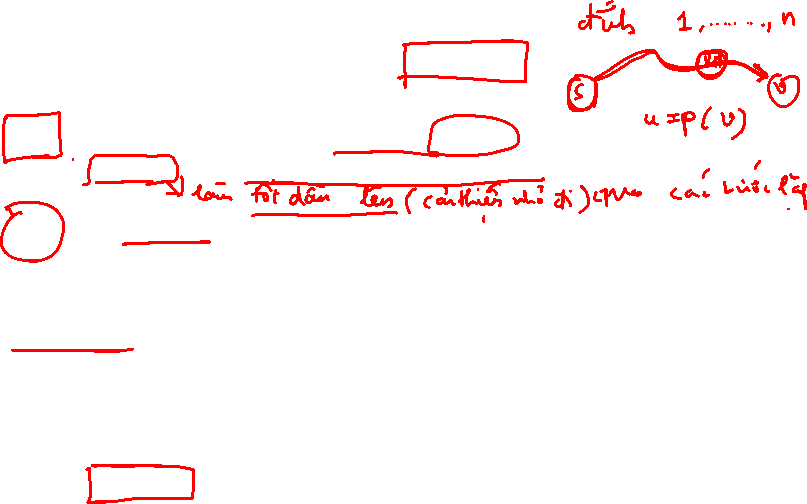 đỉnh 1, ......., n
S v
u = p(v)
làm tốt dần lên (cải thiện nhỏ đi) qua các bước lặp